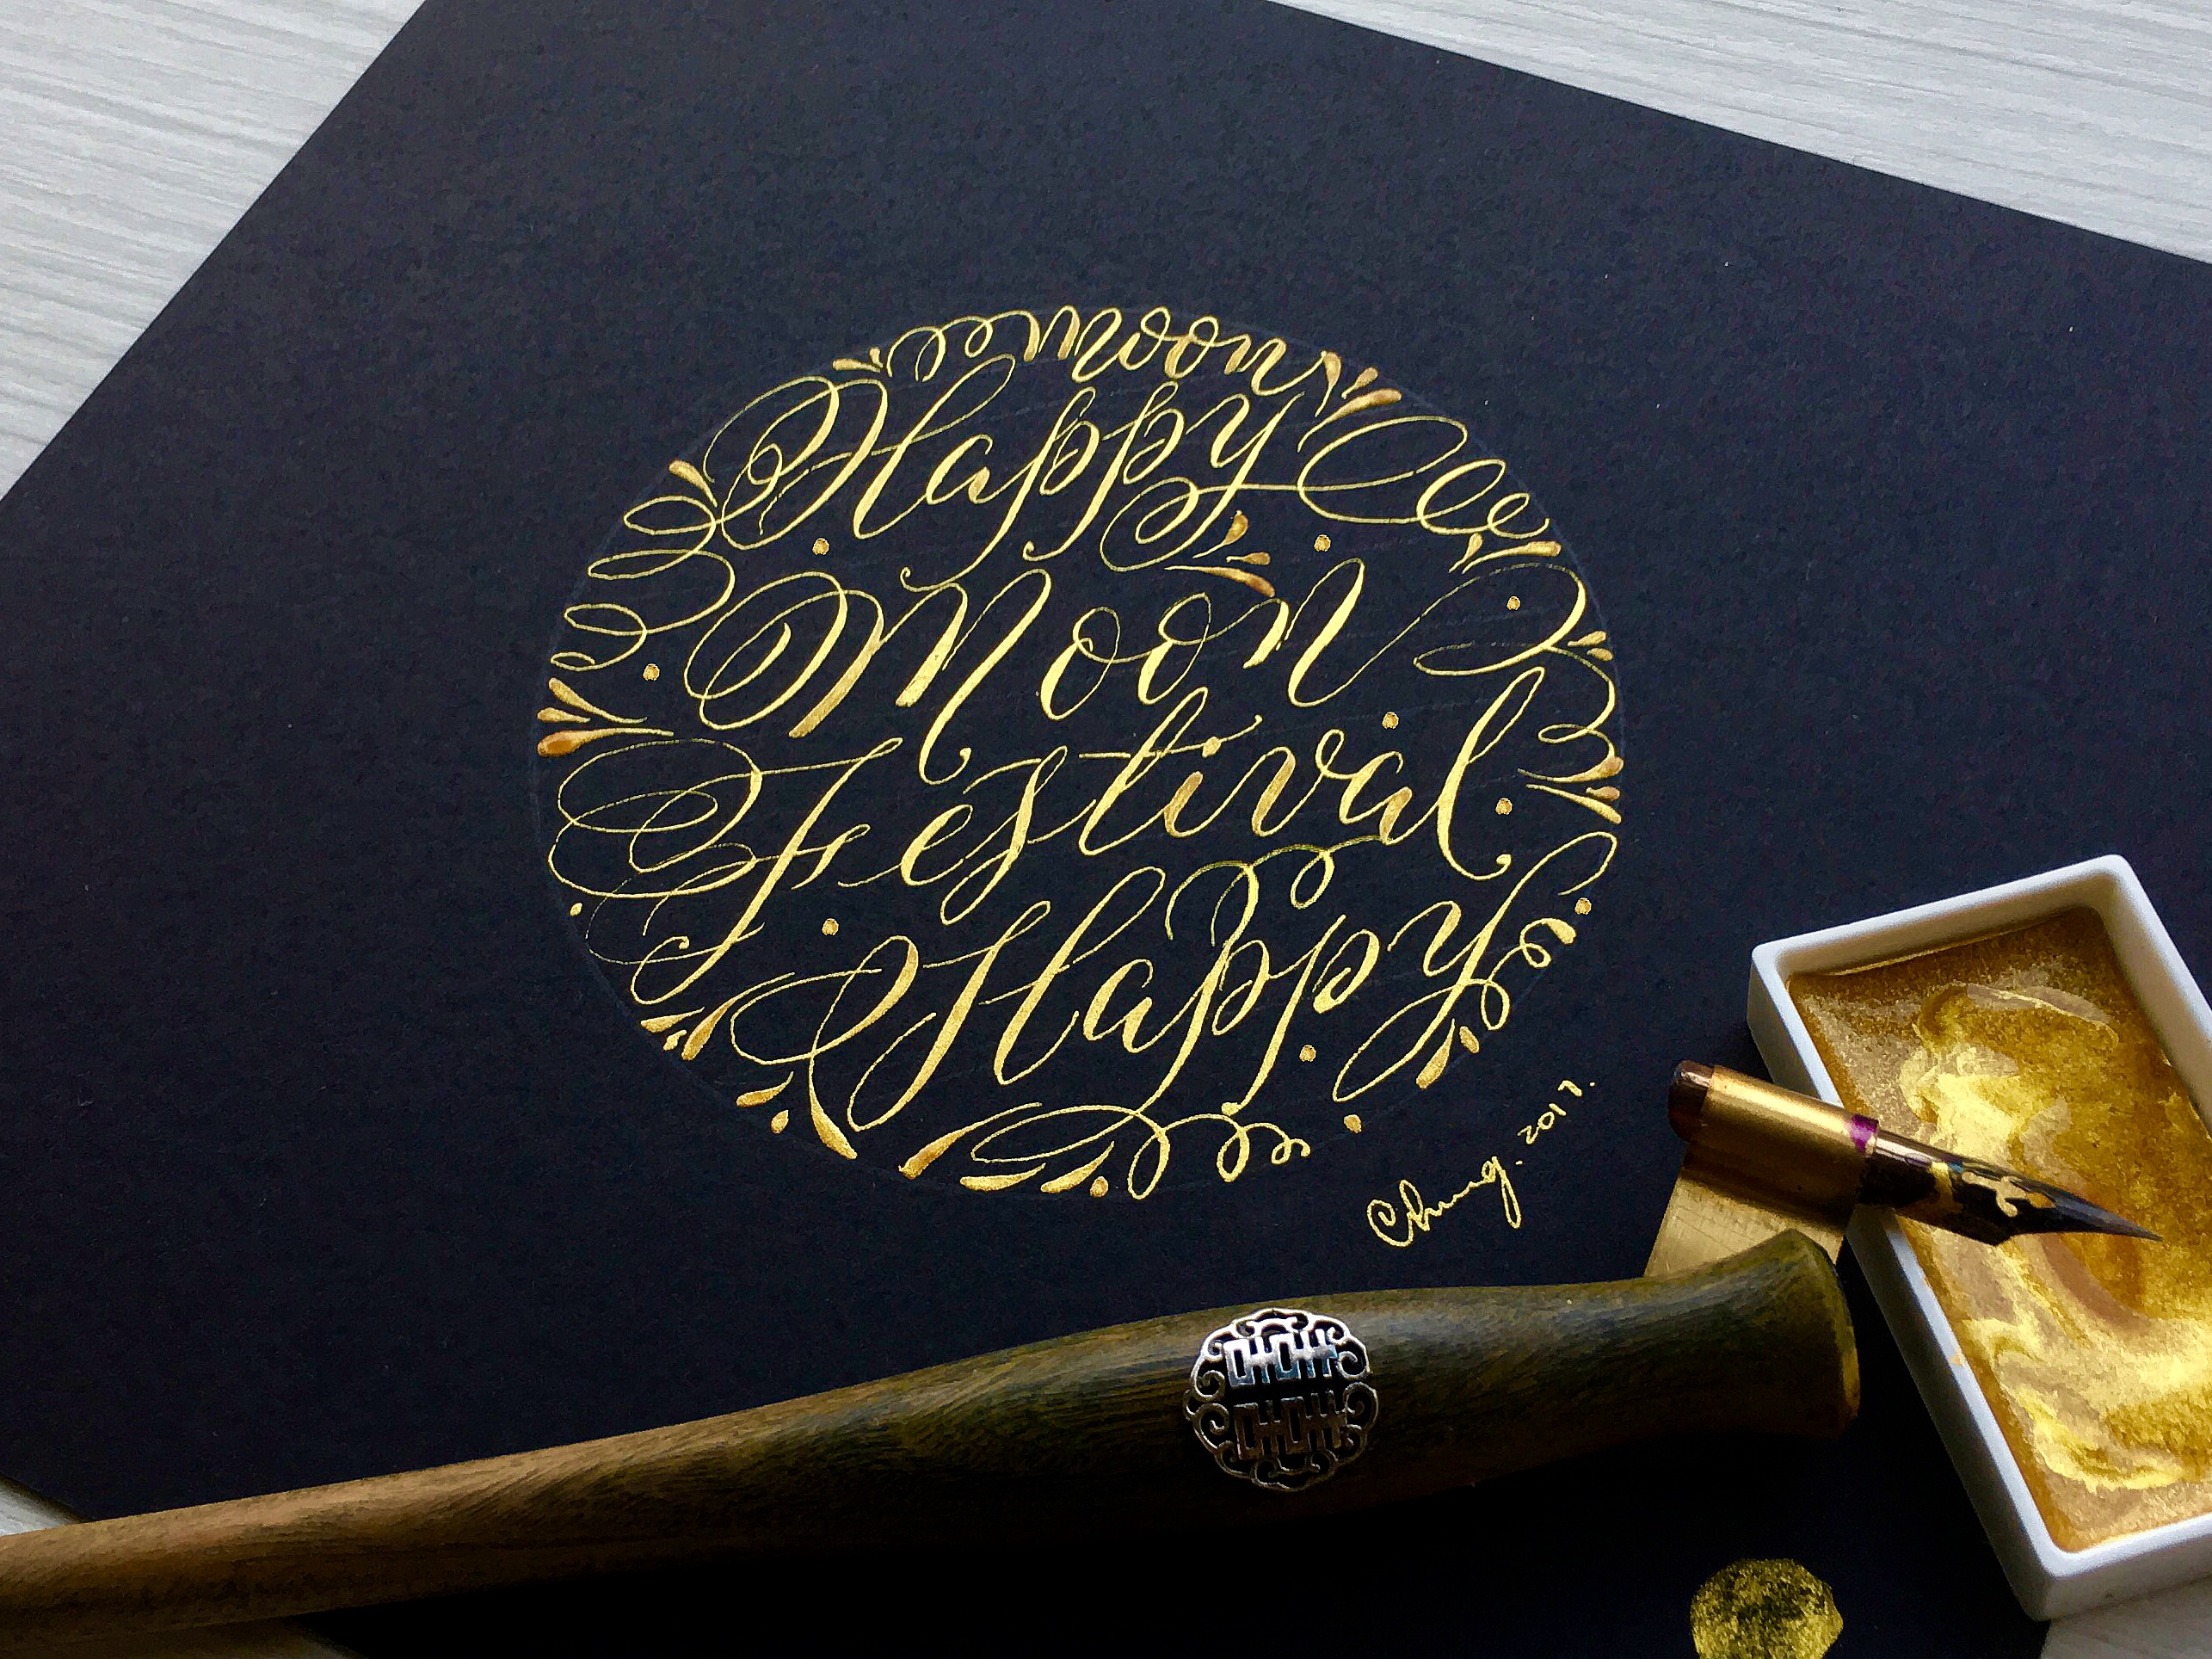 moon
Happy
Moon
Festival
Happy
Chung. 2017.